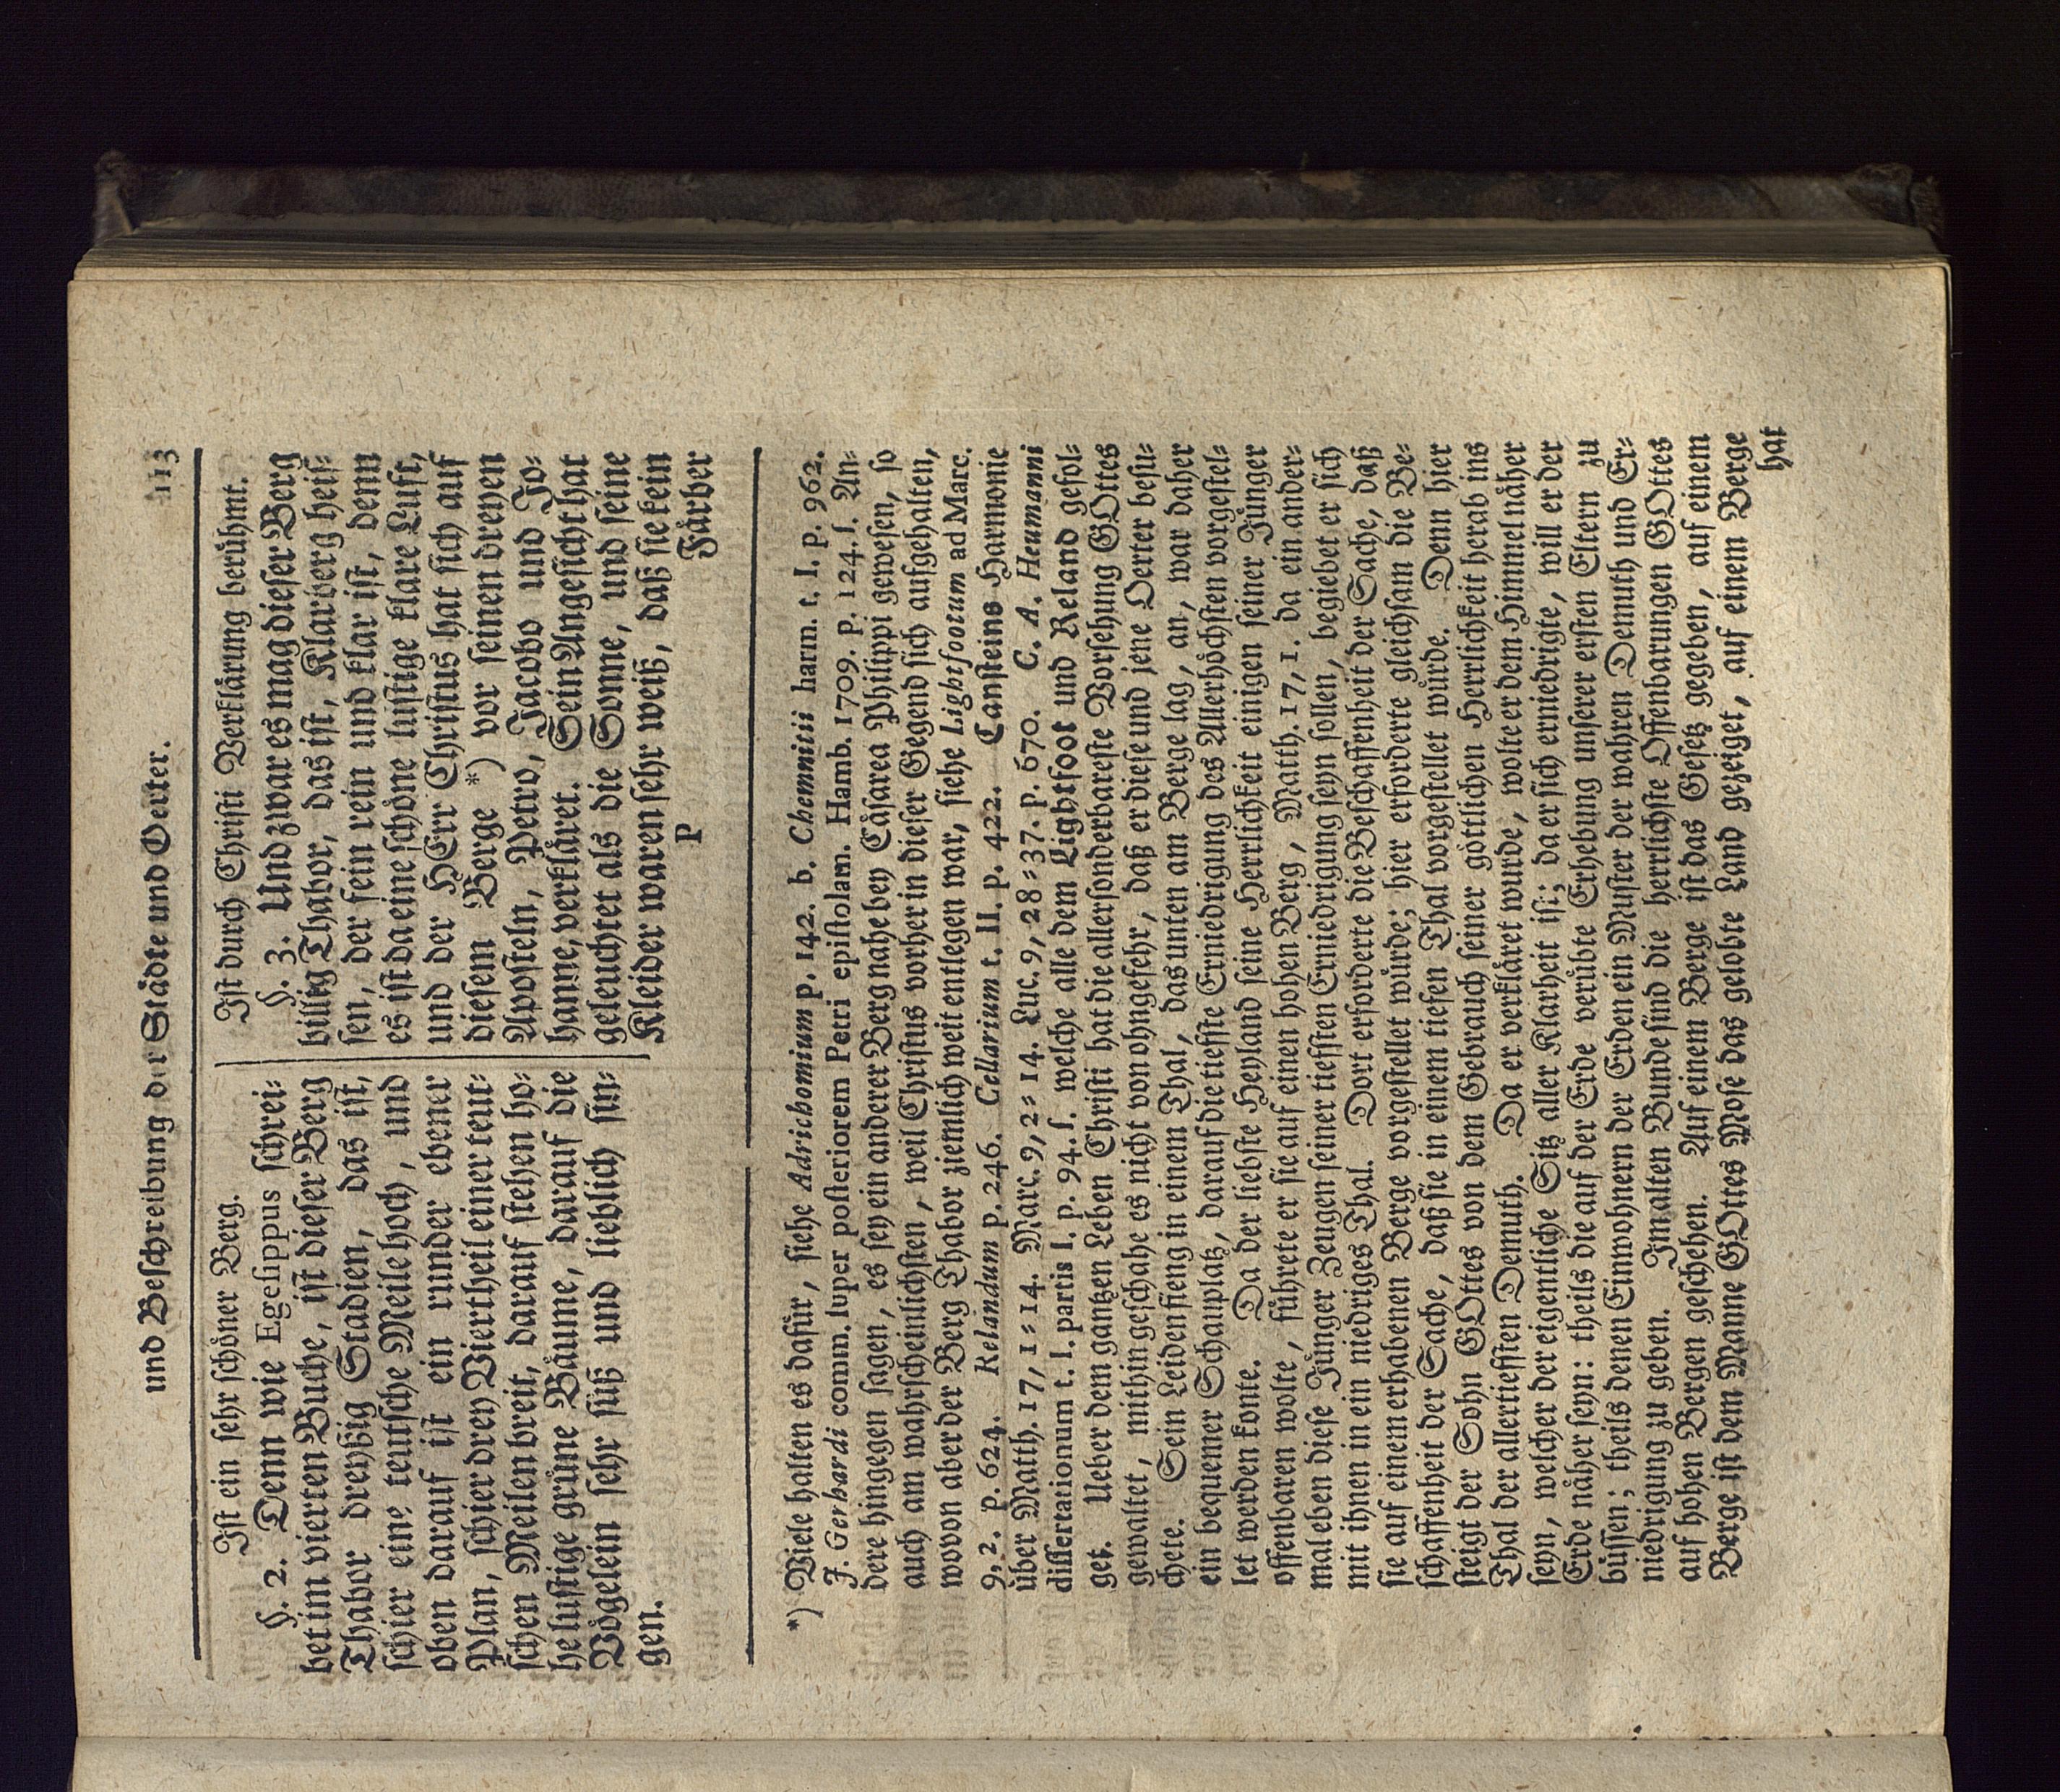 und Beschreibung der Städte und Oerter. 113
Ist ein sehr schöner Berg.
§. 2. Denn wie Egesippus schrei-
bet im vierten Buche, ist dieser Berg
Thabor dreyßig Stadien, das ist,
schier eine teutsche Meile hoch, und
oben darauf ist ein runder ebener
Plan, schier drey Viertheil einer teut-
schen Meilen breit, darauf stehen ho-
he lustige grüne Bäume, darauf die
Vögelein sehr süß und lieblich sin-
gen.
Ist durch Christi Verklärung berühmt.
§. 3. Und zwar es mag dieser Berg
billig Thabor, das ist, Klarberg heis-
sen, der fein rein und klar ist, denn
es ist da eine schöne lustige klare Luft,
und der HErr Christus hat sich auf
diesem Berge *) vor seinen dreyen
Aposteln, Petro, Jacobo und Jo-
hanne, verkläret. Sein Angesicht hat
geleuchtet als die Sonne, und seine
Kleider waren sehr weiß, daß sie kein
P Färber
*) Viele halten es dafür, siehe Adrichomium p. 142. b. Chemnitii harm. t. I. p. 962.
J. Gerhardi comm. super posteriorem Petri epistolam. Hamb. 1709. p. 124. s. An-
dere hingegen sagen, es sey ein anderer Berg nahe bey Cäsarea Philippi gewesen, so
auch am wahrscheinlichsten, weil Christus vorher in dieser Gegend sich aufgehalten,
wovon aber der Berg Thabor ziemlich weit entlegen war, siehe Lightfootum ad Marc.
9, 2. p. 624. Relandum p. 246. Cellarium t. II. p. 422. Cansteins Harmonie
über Matth. 17, 1=14. Marc. 9, 2=14. Luc. 9, 28=37. p. 670. C. A. Heumanni
dissertationum t. I. partis I. p. 94. s. welche alle dem Lightfoot und Reland gefol-
get. Ueber dem gantzen Leben Christi hat die allersonderbareste Vorsehung GOttes
gewaltet, mithin geschahe es nicht von ohngefehr, daß er diese und jene Oerter besu-
chete. Sein Leiden fieng in einem Thal, das unten am Berge lag, an, war daher
ein bequemer Schauplatz, darauf die tiefste Erniedrigung des Allerhöchsten vorgestel-
let werden konte. Da der liebste Heyland seine Herrlichkeit einigen seiner Jünger
offenbaren wolte, führete er sie auf einen hohen Berg, Matth. 17, 1. da ein ander-
mal eben diese Jünger Zeugen seiner tiefsten Erniedrigung seyn sollen, begiebet er sich
mit ihnen in ein niedriges Thal. Dort erforderte die Beschaffenheit der Sache, daß
sie auf einem erhabenen Berge vorgestellet würde; hier erforderte gleichsam die Be-
schaffenheit der Sache, daß sie in einem tiefen Thal vorgestellet würde. Denn hier
steigt der Sohn GOttes von dem Gebrauch seiner göttlichen Herrlichkeit herab ins
Thal der allertiefsten Demuth. Da er verkläret wurde, wolte er dem Himmel näher
seyn, welcher der eigentliche Sitz aller Klarheit ist; da er sich erniedrigte, will er der
Erde näher seyn: theils die auf der Erde verübte Erhebung unserer ersten Eltern zu
büssen; theils denen Einwohnern der Erden ein Muster der wahren Demuth und Er-
niedrigung zu geben. Im alten Bunde sind die herrlichste Offenbarungen GOttes
auf hohen Bergen geschehen. Auf einem Berge ist das Gesetz gegeben, auf einem
Berge ist dem Manne GOttes Mose das gelobte Land gezeiget, auf einem Berge
hat